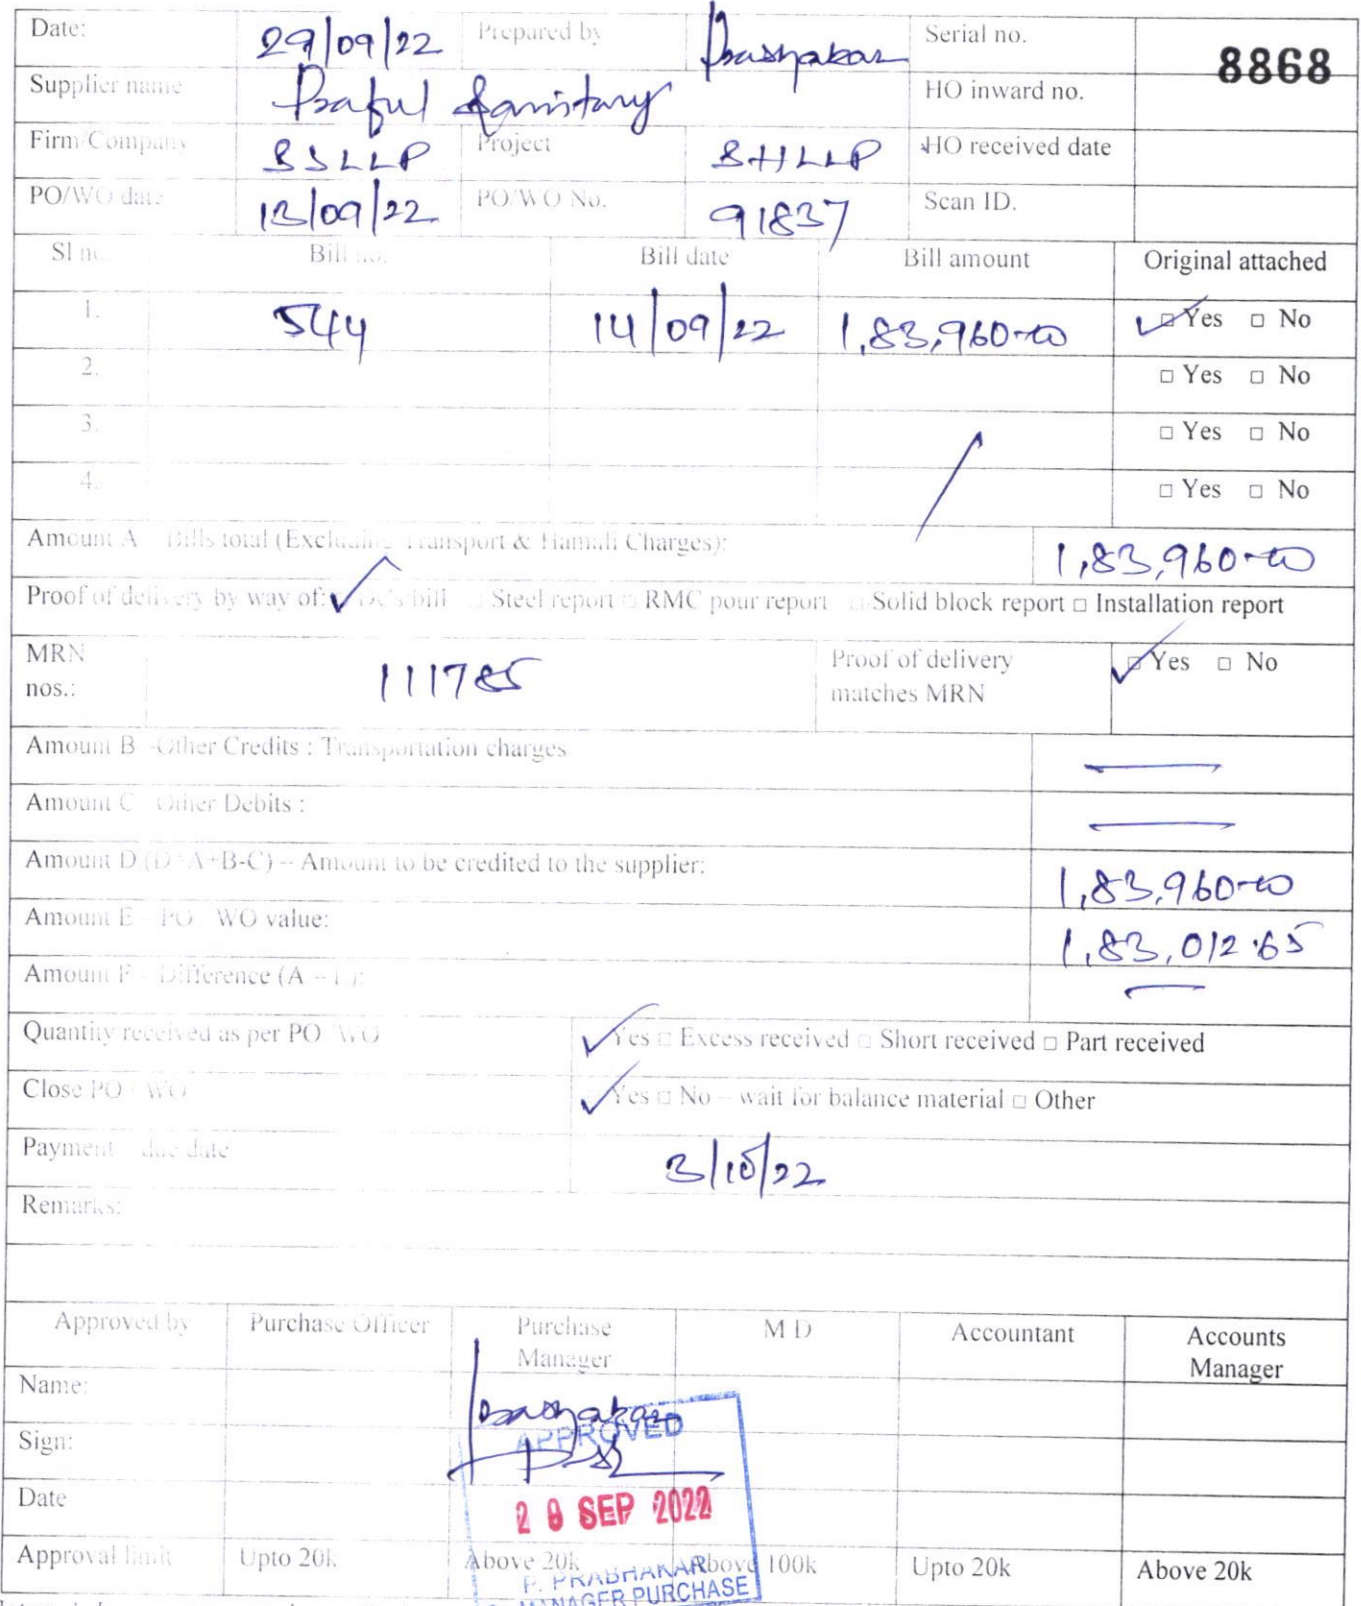 Date: 29/09/22 Prepared by Prabhakar Serial no. 8868
Supplier name Praful Sanitary HO inward no.
Firm/Company SSLLP Project SHLLP HO received date
PO/WO date 13/09/22 PO/WO No. 91837 Scan ID.
Sl no. Bill no. Bill date Bill amount Original attached
1. 544 14/09/22 1,83,960-00 ☑ Yes □ No
2. □ Yes □ No
3. □ Yes □ No
4. □ Yes □ No
Amount A – Bills total (Excluding Transport & Hamali Charges): 1,83,960-00
Proof of delivery by way of: ☑ DC's/bill □ Steel report □ RMC pour report □ Solid block report □ Installation report
MRN nos.: 111785 Proof of delivery matches MRN ☑ Yes □ No
Amount B -Other Credits : Transportation charges —
Amount C -Other Debits : —
Amount D (D=A+B-C) – Amount to be credited to the supplier: 1,83,960-00
Amount E – PO / WO value: 1,83,012.65
Amount F – Difference (A – E): —
Quantity received as per PO / WO ☑ Yes □ Excess received □ Short received □ Part received
Close PO / WO ☑ Yes □ No – wait for balance material □ Other
Payment – due date 3/10/22
Remarks:
Approved by Purchase Officer Purchase Manager M D Accountant Accounts Manager
Name: Prabhakar
Sign: APPROVED
Date 29 SEP 2022
Approval limit Upto 20k Above 20k Above 100k Upto 20k Above 20k
P. PRABHAKAR
MANAGER PURCHASE